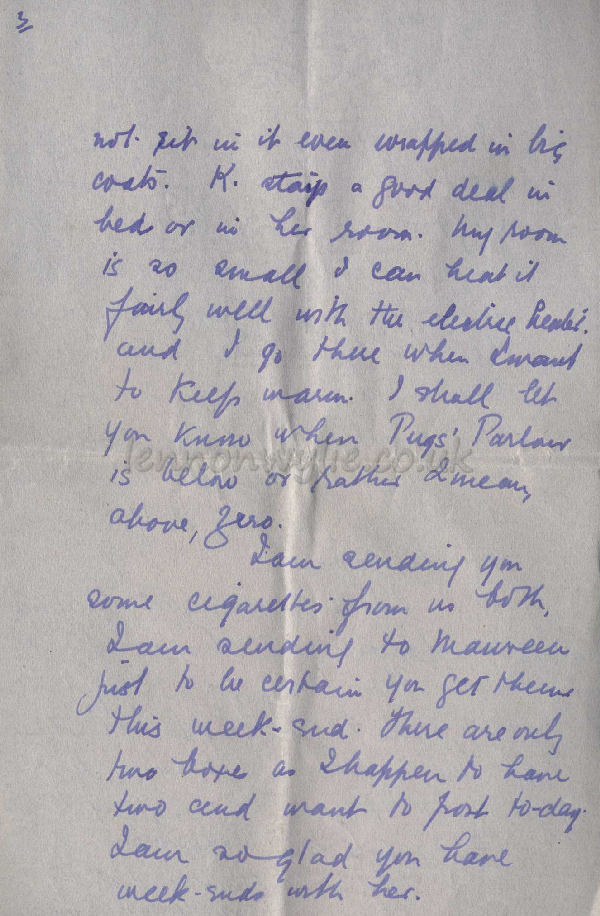 3
not sit in it even wrapped in big
coats. K. stays a good deal in
bed or in her room. My room
is so small I can heat it
fairly well with the electric heater.
and I go there when I want
to keep warm. I shall let
you know when Pugs' Parlour
lennonwylie.co.uk
is below or rather I mean,
above, zero.
I am sending you
some cigarettes from us both,
I am sending to Maureen
just to be certain you get them
this week-end. There are only
two boxes as I happen to have
two and want to post to-day.
I am so glad you have
week-ends with her.